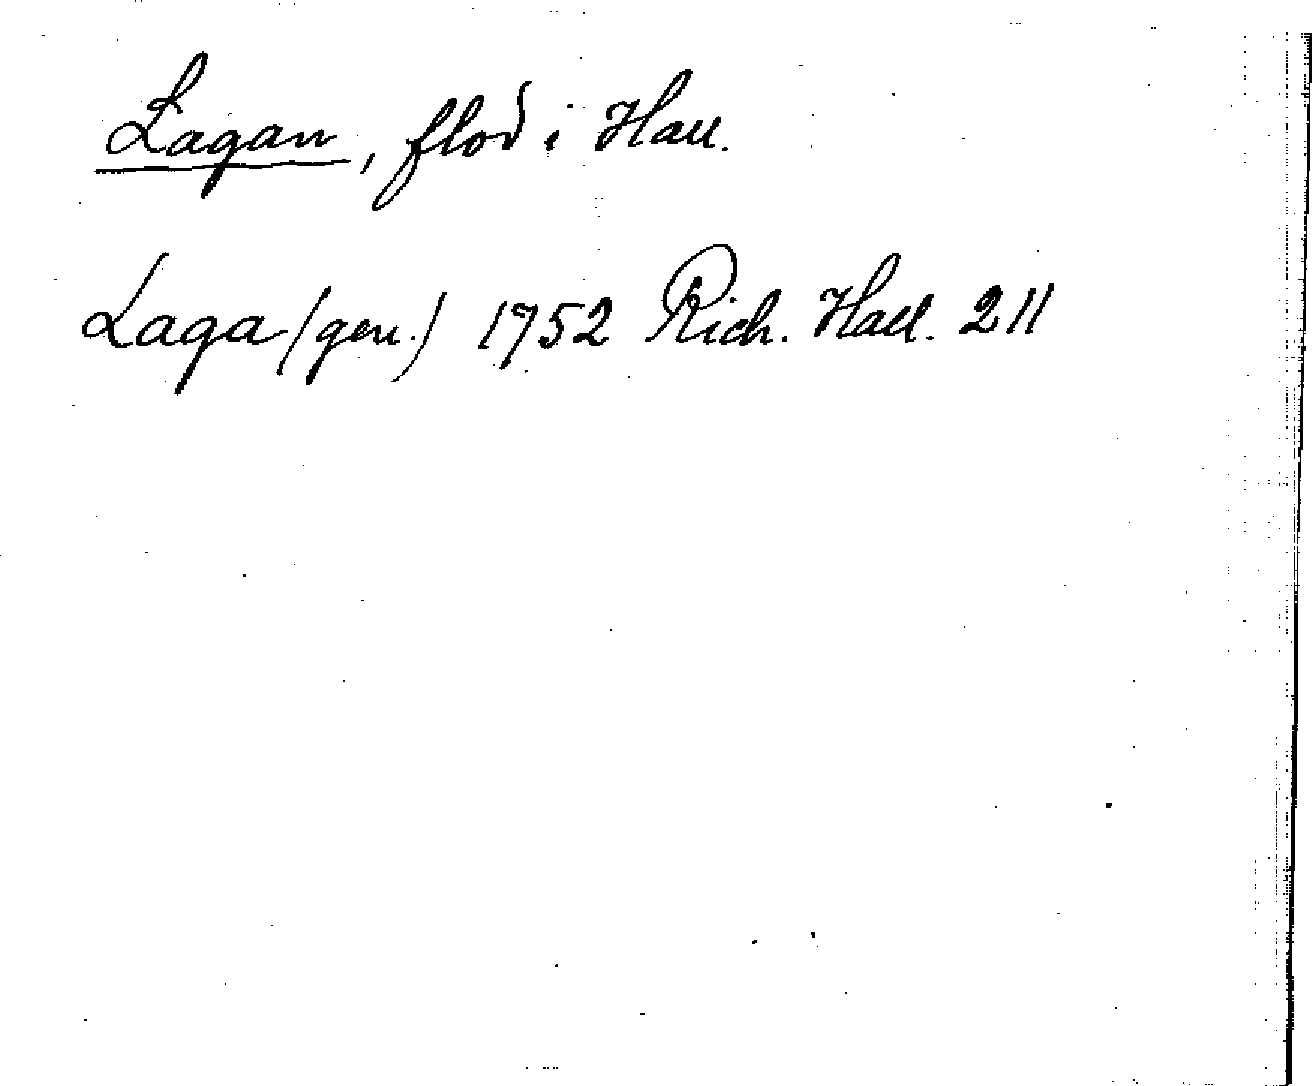 Lagan, flod i Hall.
Laga (gen.) 1752 Rich. Hall. 211